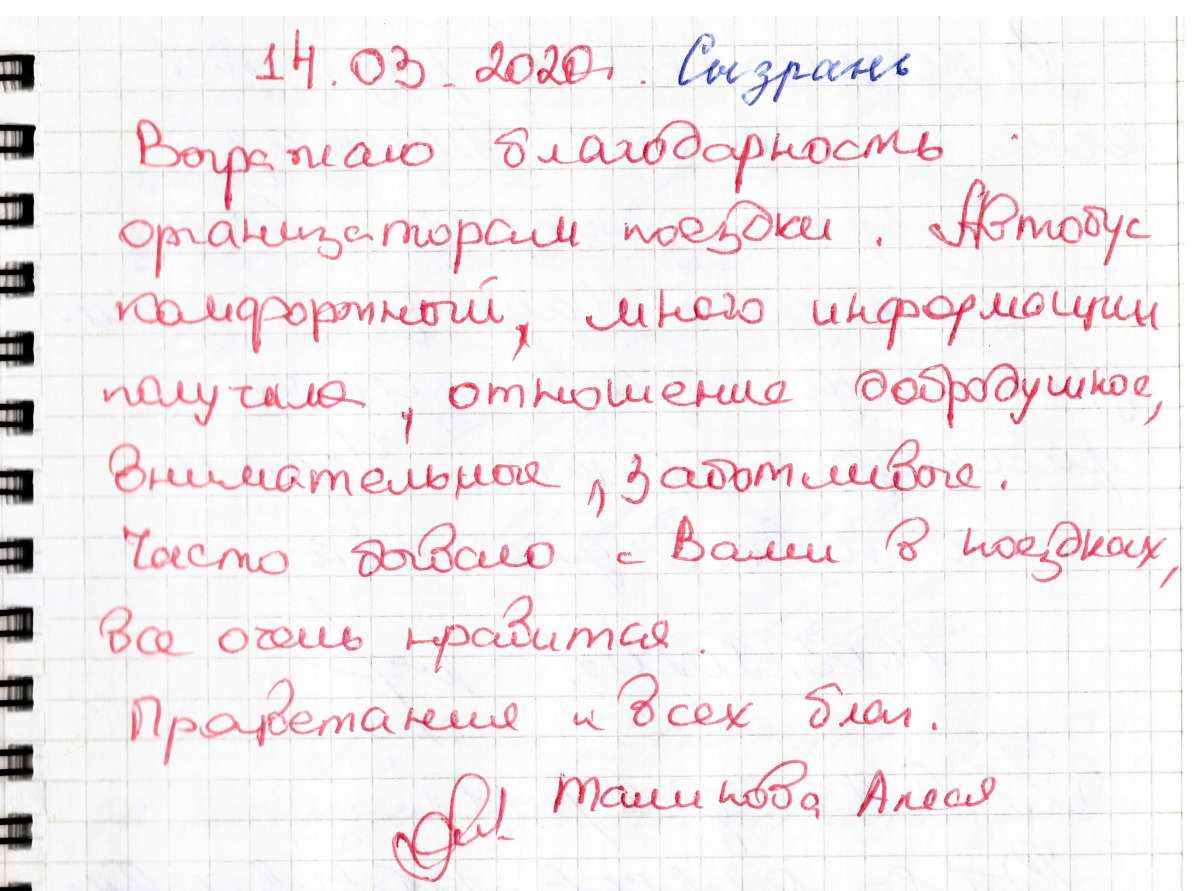 14.03.2020г. Сызрань
Выражаю благодарность
организаторам поездки. Автобус
комфортный, много информации
получила, отношение добродушное,
внимательное, заботливое.
Часто бываю с Вами в поездках,
все очень нравится.
Процветания и всех благ.
Алеся